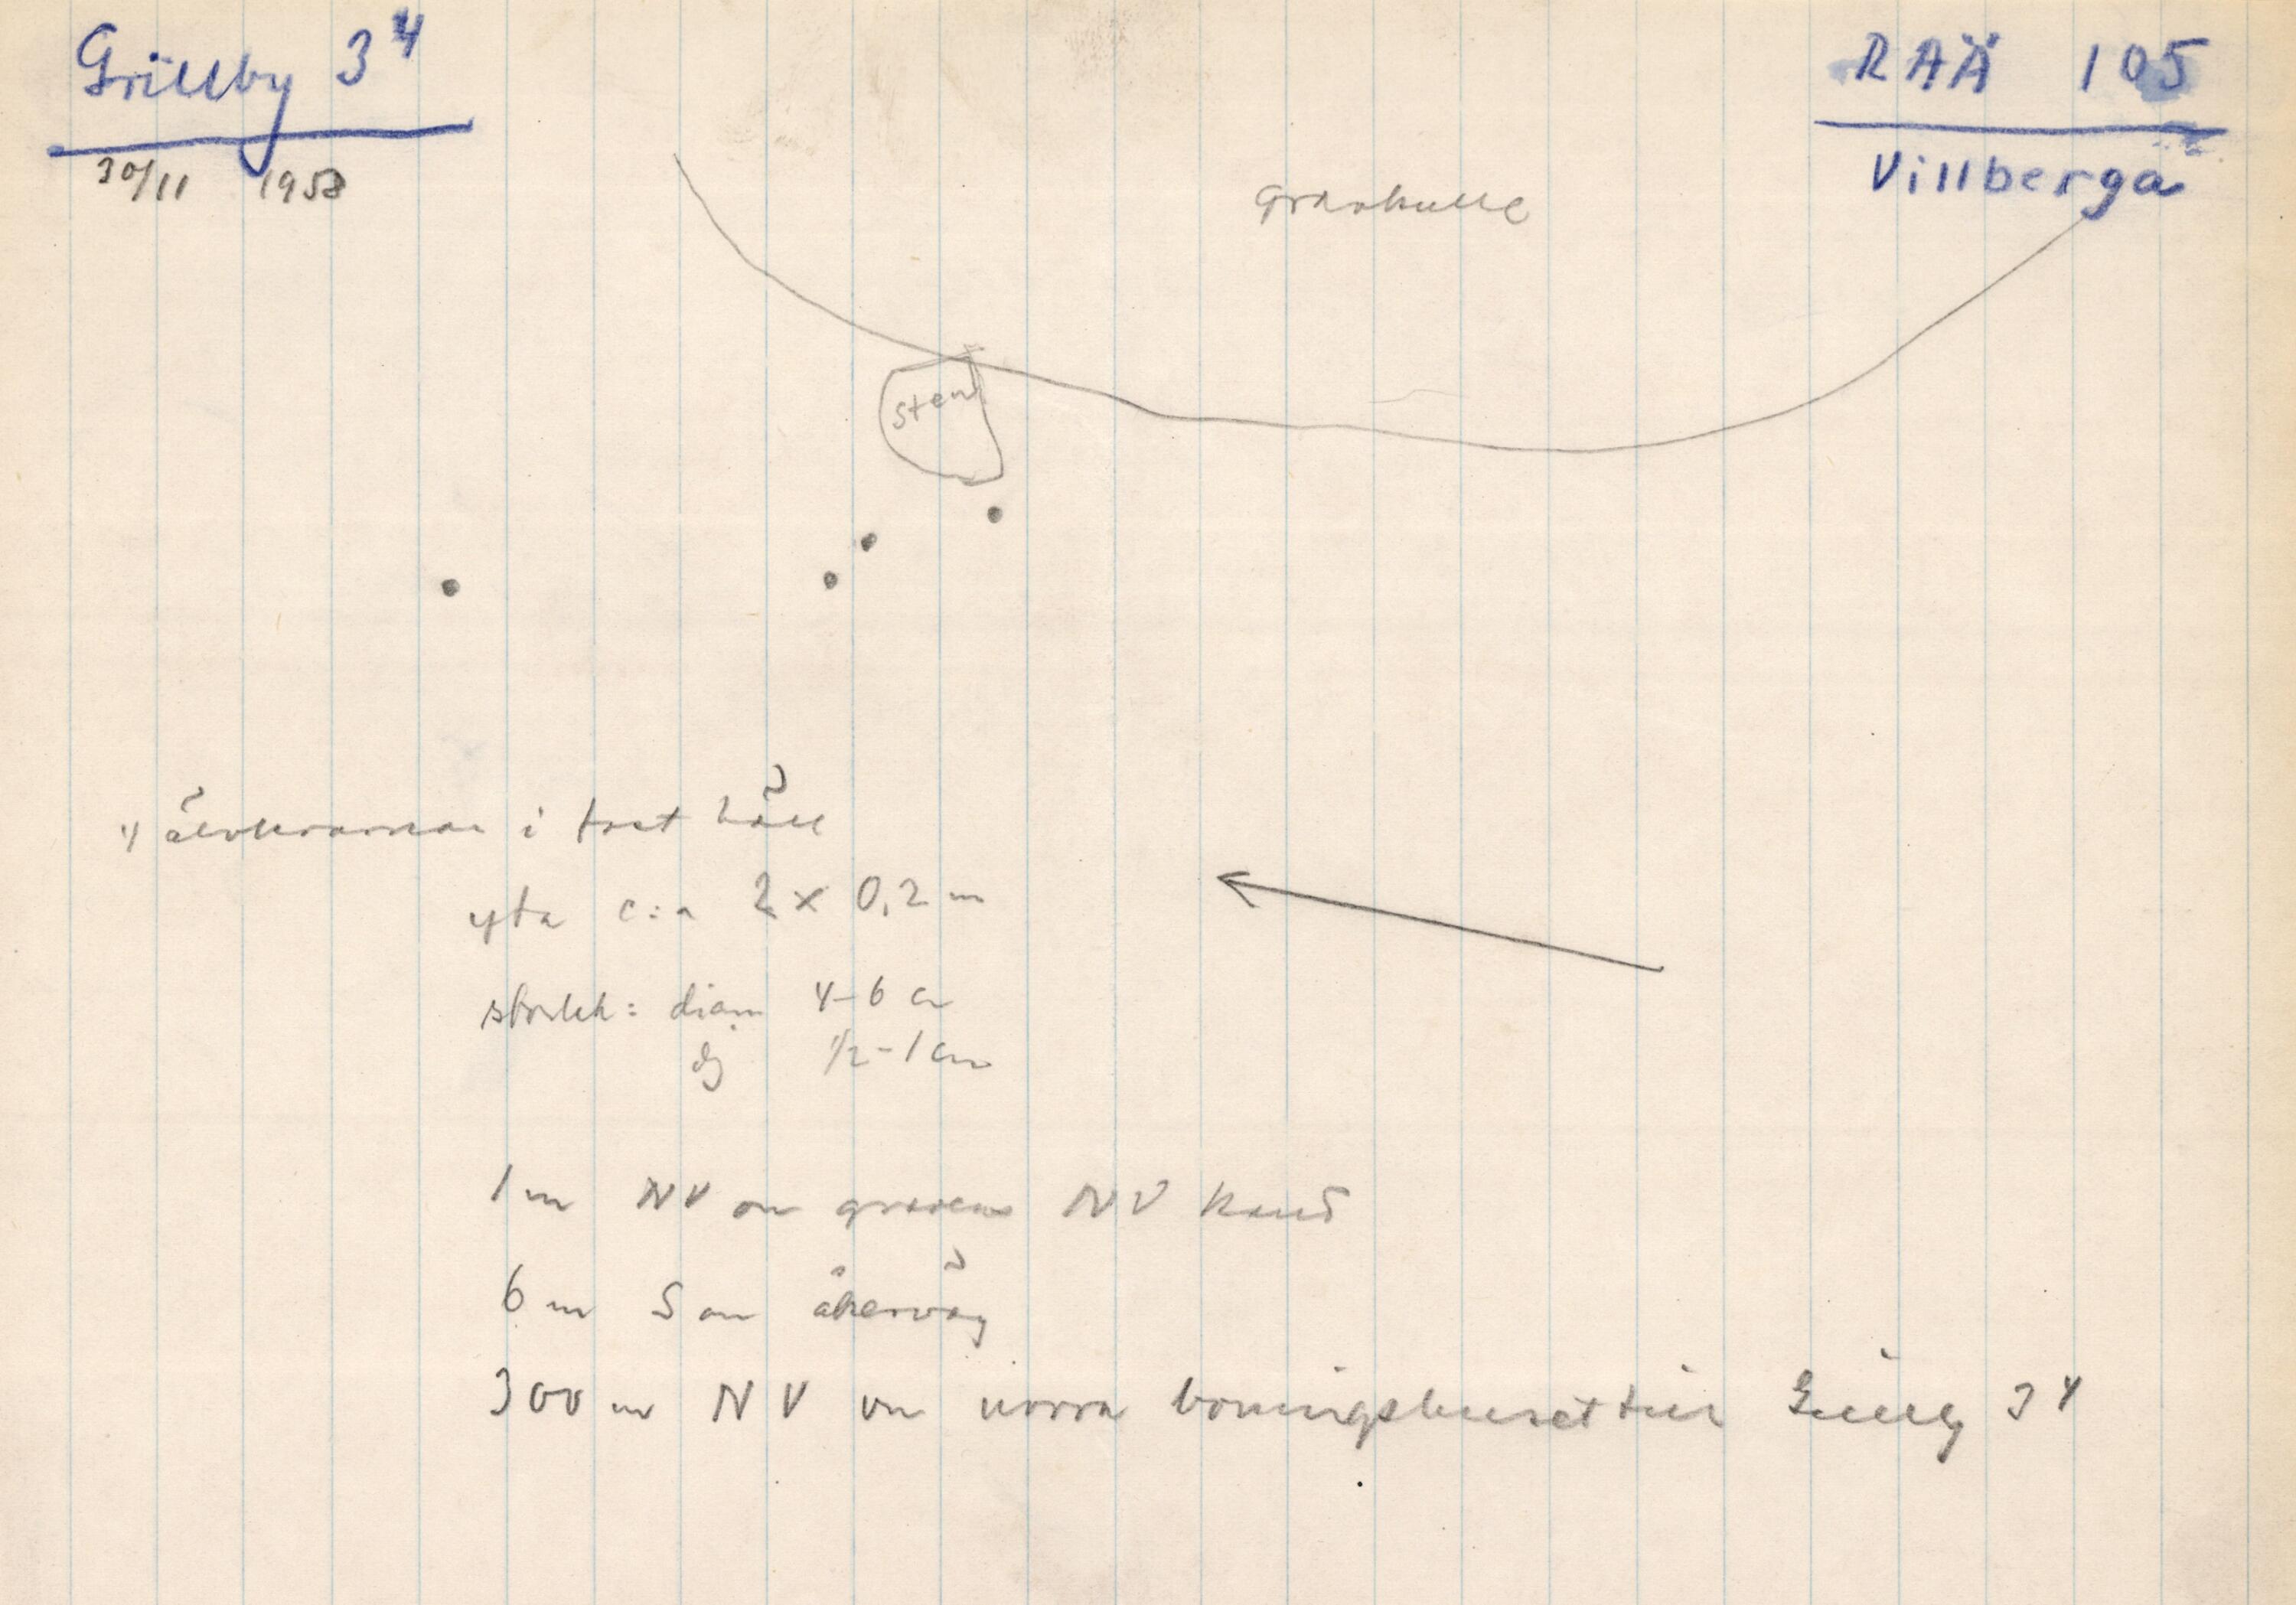 Grillby 3⁴
RAÄ 105
30/11 1958
Villberga
Gravkulle
Sten
4 älvkvarnar i fast häll
yta c:a 2 x 0,2 m
storlek: diam 4-6 cm
dj 1/2-1 cm
1 m NV om gravens NV kant
6 m S om åkerväg
300 m NV om norra boningshuset till Grillby 3⁴